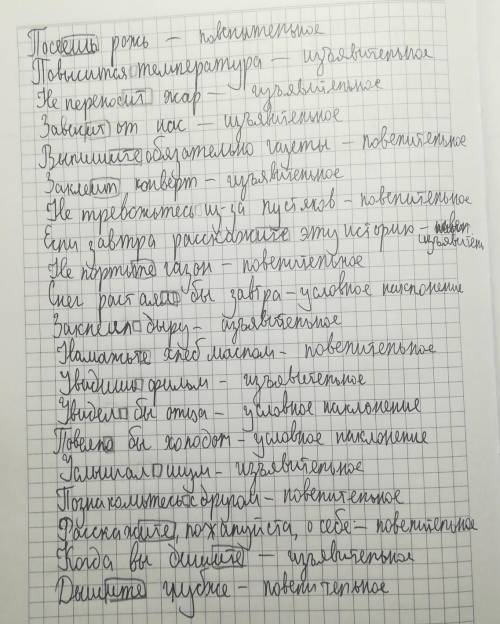 Посеешь рожь — повелительное
Повысится температура — изъявительное
Не переносит жар — изъявительное
Зависит от нас — изъявительное
Выпишите обязательно газеты — повелительное
Заклеит конверт — изъявительное
Не тревожьтесь из-за пустяков — повелительное
Если завтра расскажите эту историю — изъявител
Не портьте газон — повелительное
Снег растаял бы завтра — условное наклонение
Заклеил дыру — изъявительное
Намажьте хлеб маслом — повелительное
Увидишь фильм — изъявительное
Увидел бы отца — условное наклонение
Повеяло бы холодом — условное наклонение
Услышал шум — изъявительное
Познакомьтесь с другом — повелительное
Расскажите, пожалуйста, о себе — повелительное
Когда вы дышите — изъявительное
Дышите глубже — повелительное